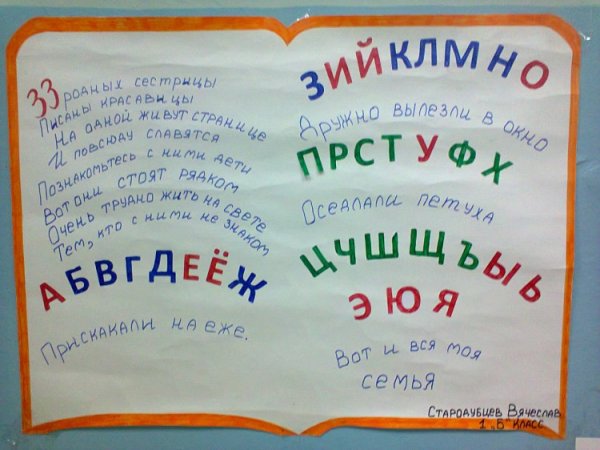 33 родных сестрицы
Писаны красавицы
На одной живут странице
И повсюду славятся
Познакомьтесь с ними дети
Вот они стоят рядком
Очень трудно жить на свете
Тем, кто с ними не знаком
АБВГДЕЁЖ
Прискакали на еже.
ЗИЙКЛМНО
Дружно вылезли в окно
ПРСТУФХ
Оседлали петуха
ЦЧШЩЪЫЬ
ЭЮЯ
Вот и вся моя
семья
Стародубцев Вячеслав
1 „Б" класс